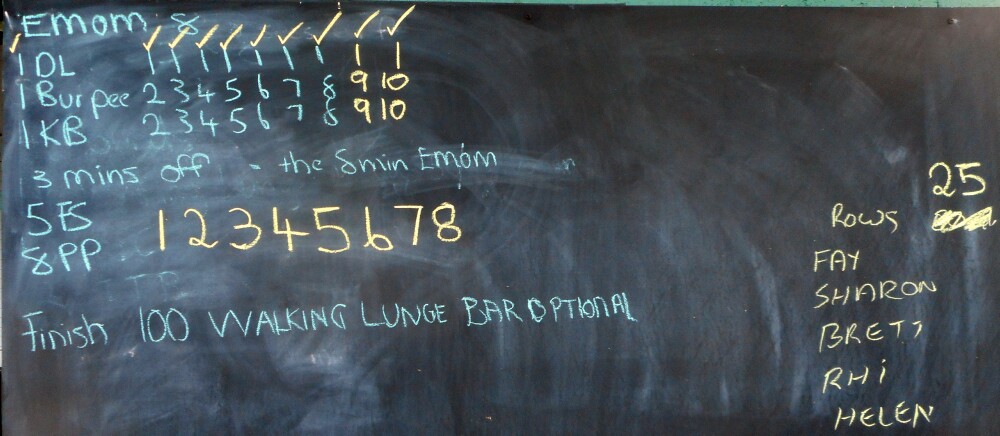 Emom 8
1 DL 1 1 1 1 1 1 1 1 1
1 Burpee 2 3 4 5 6 7 8 9 10
1 KB 2 3 4 5 6 7 8 9 10
3 mins off = the 8min Emom
5 FS
8 PP 1 2 3 4 5 6 7 8
Finish 100 WALKING LUNGE BAR OPTIONAL
25
ROWS
FAY
SHARON
BRETT
RHi
HELEN